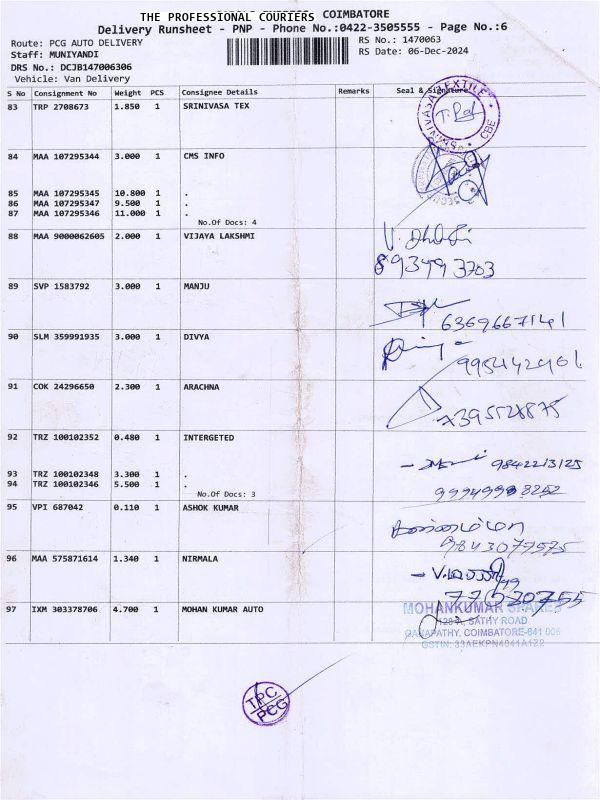 THE PROFESSIONAL COURIERS COIMBATORE
Delivery Runsheet - PNP - Phone No.:0422-3505555 - Page No.:6
Route: PCG AUTO DELIVERY RS No.: 1470063
Staff: MUNIYANDI RS Date: 06-Dec-2024
DRS No.: DCJB147006306
Vehicle: Van Delivery
S No Consignment No Weight PCS Consignee Details Remarks Seal & Signature
83 TRP 2708673 1.850 1 SRINIVASA TEX
SRINIVASA TEXTILE CBE
84 MAA 107295344 3.000 1 CMS INFO
85 MAA 107295345 10.800 1 .
86 MAA 107295347 9.500 1 .
87 MAA 107295346 11.000 1 .
No.Of Docs: 4
88 MAA 9000062605 2.000 1 VIJAYA LAKSHMI
89 SVP 1583792 3.000 1 MANJU
6369667141
90 SLM 359991935 3.000 1 DIVYA
91 COK 24296650 2.300 1 ARACHNA
7395528875
92 TRZ 100102352 0.480 1 INTERGETED
9842213125
93 TRZ 100102348 3.300 1 .
94 TRZ 100102346 5.500 1 .
No.Of Docs: 3
95 VPI 687042 0.110 1 ASHOK KUMAR
9843077575
96 MAA 575871614 1.340 1 NIRMALA
97 IXM 303378706 4.700 1 MOHAN KUMAR AUTO
MOHANKUMAR SPARES
128 A, SATHY ROAD
GANAPATHY, COIMBATORE-641 006
GSTIN: 33AEKPN4041A1Z2
TPC
PCG